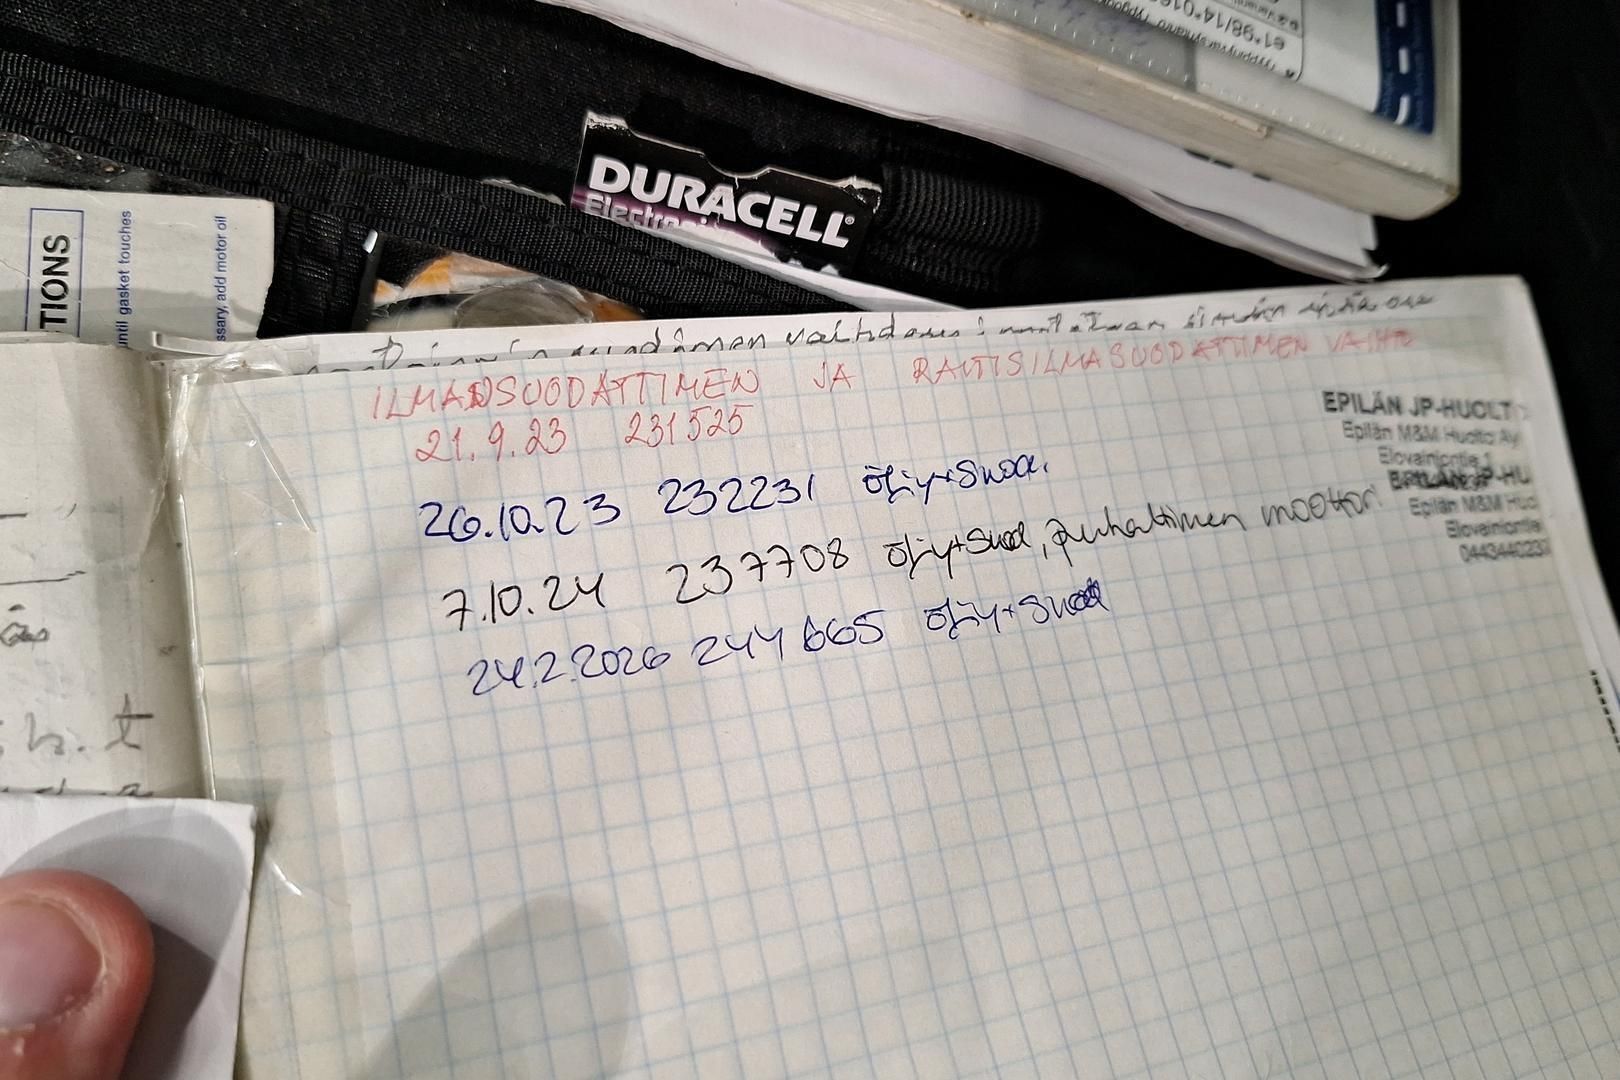 e1*98/14*01
DURACELL®
Electroni
TIONS
until gasket touches
ssary, add motor oil
suodattimen vaihdossa:
ILMANSUODATTIMEN JA RAITISILMASUODATTIMEN VAIHTO
21.9.23 231525
EPILÄN JP-HUOLT
Epilän M&M Huolto Ay
Elovainiontie 1
26.10.23 232231 Öljy+suod.
EPILÄN JP-HU
Epilän M&M Huo
Elovainiontie
044344023
7.10.24 237708 Öljy+suod, puhaltimen moottori
24.2.2026 244665 Öljy+suod
h. t